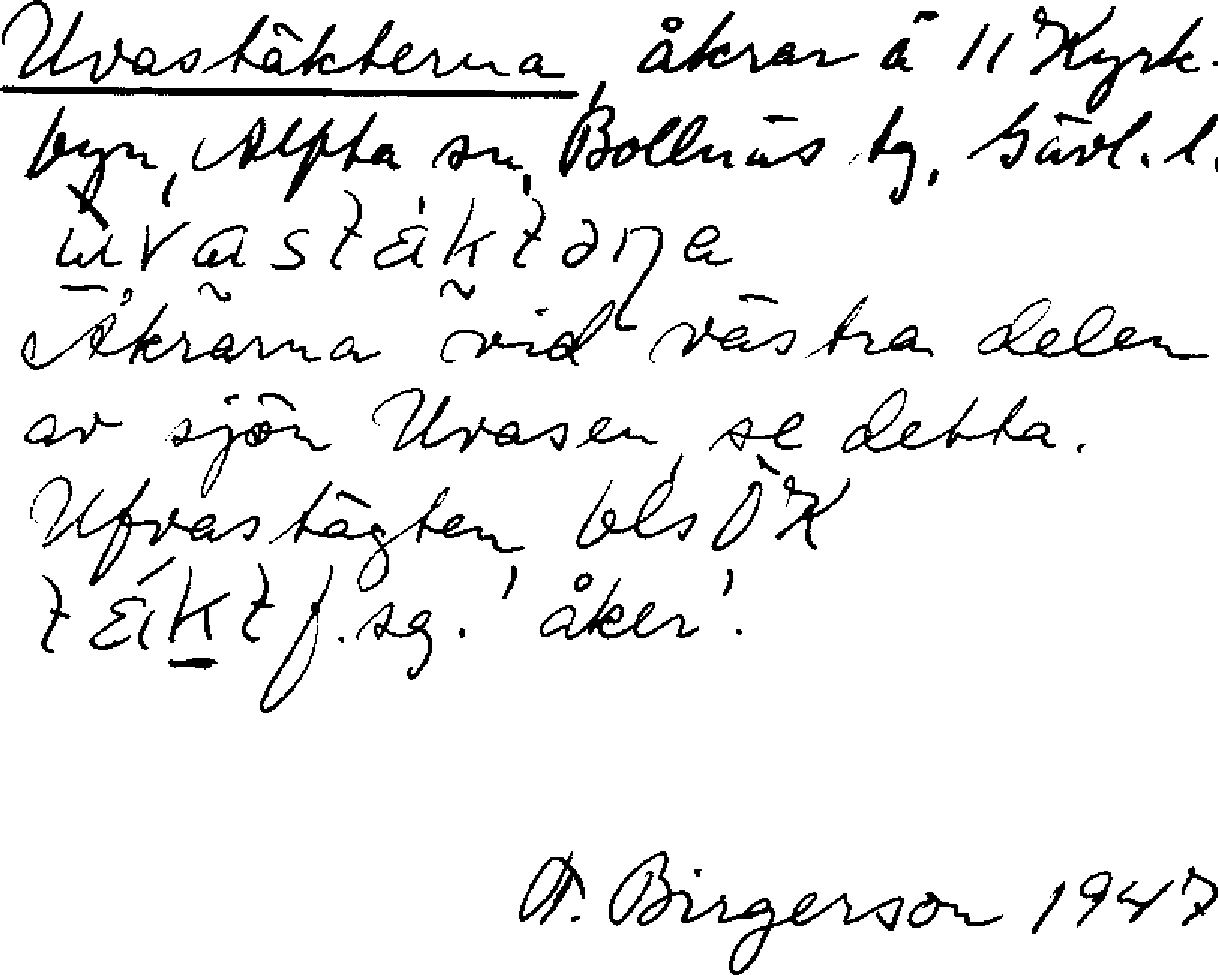 Uvastäkterna, åkrar å 11 Kyrk-
byn, Alfta sn, Bollnäs tg, Gävl. l.
Åkrarna vid västra delen
av sjön Uvasen, se detta.
Ufvastägten, bls ÖK
f. sg. 'åker'.
A. Birgerson 1947